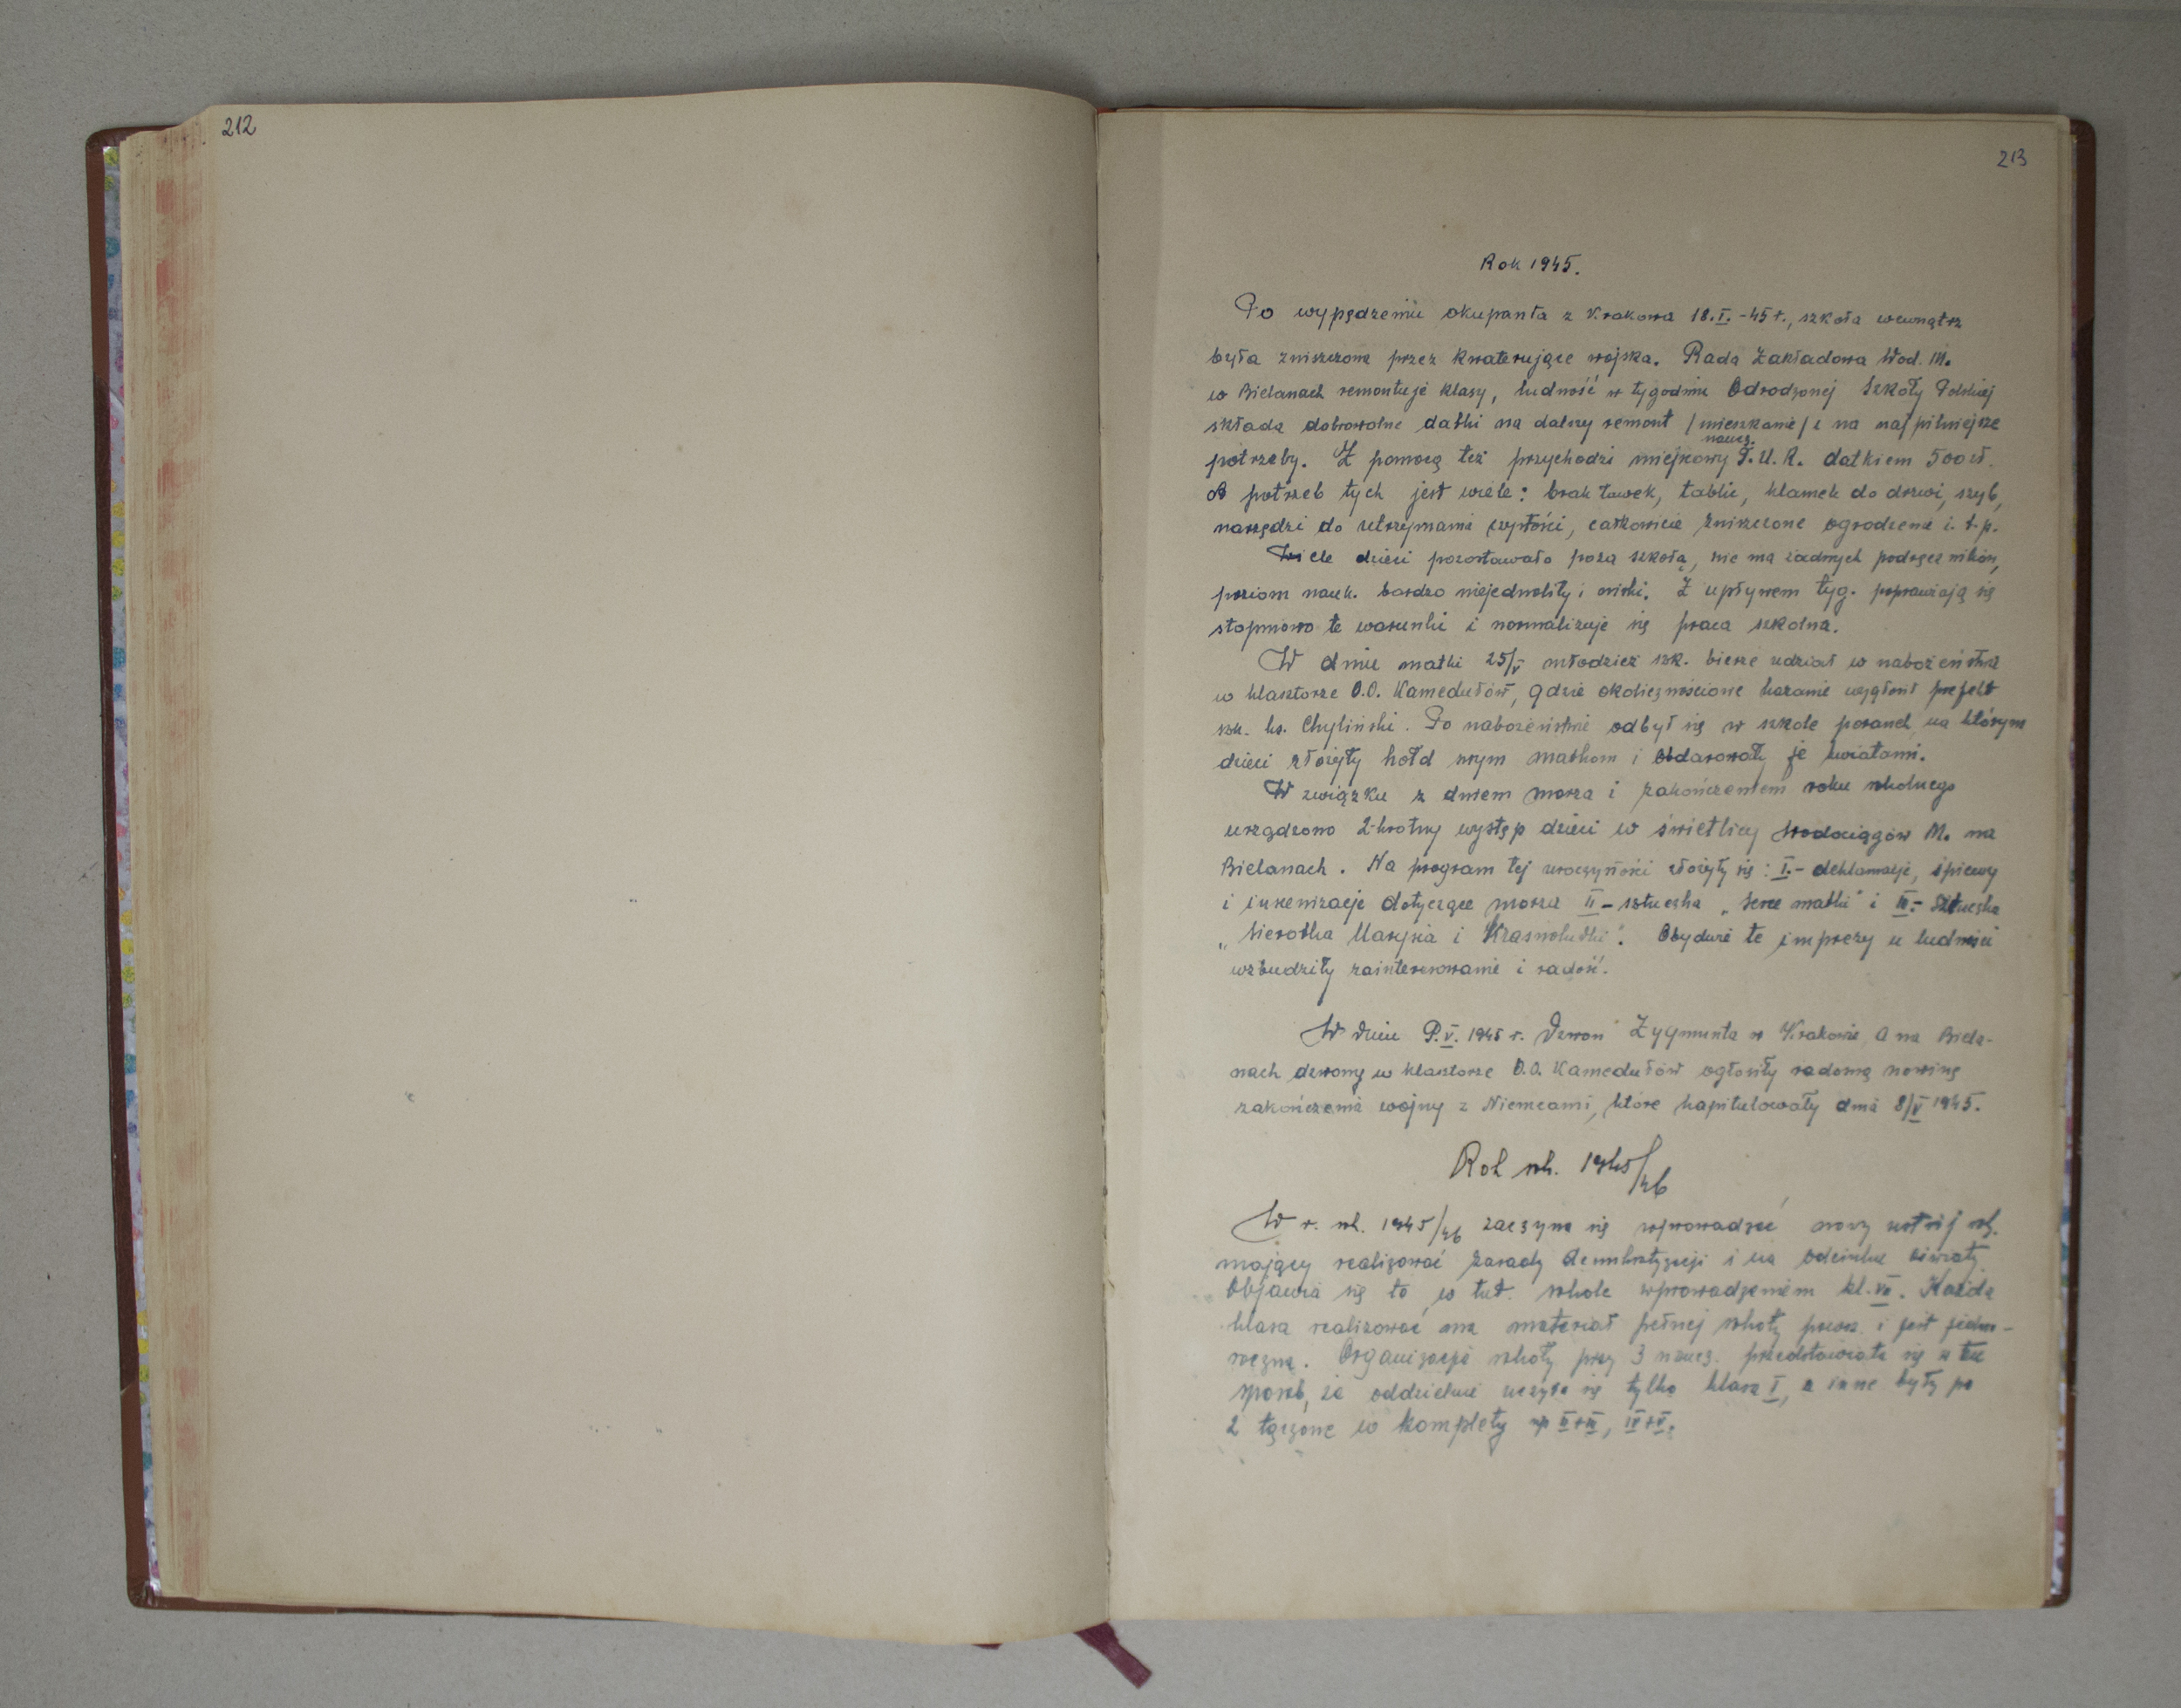 212
213
Rok 1945.
Po wypędzeniu okupanta z Krakowa 18.I.-45 r., szkoła wewnątrz
była zniszczona przez kwaterujące wojska. Rada Zakładowa Wod. M.
w Bielanach remontuje klasy, ludność w tygodniu Odrodzonej Szkoły Polskiej
składa dobrowolne datki na dalszy remont /mieszkanie/ i na najpilniejsze
naucz.
potrzeby. Z pomocą też przychodzi miejscowy T.U.R. datkiem 500 zł.
A potrzeb tych jest wiele: brak ławek, tablic, klamek do drzwi, szyb,
narzędzi do utrzymania czystości, całkowicie zniszczone ogrodzenie i.t.p.
Wiele dzieci pozostawało poza szkołą, nie ma żadnych podręczników,
poziom nauk. bardzo niejednolity i niski. Z upływem tyg. poprawiają się
stopniowo te warunki i normalizuje się praca szkolna.
W dniu matki 25/V młodzież szk. bierze udział w nabożeństwie
w klasztorze O.O. Kamedułów, gdzie okolicznościowe kazanie wygłosił prefekt
szk. ks. Chyliński. Po nabożeństwie odbył się w szkole poranek na którym
dzieci złożyły hołd swym matkom i obdarowały je kwiatami.
W związku z dniem morza i zakończeniem roku szkolnego
urządzono 2-krotny występ dzieci w świetlicy Wodociągów M. na
Bielanach. Na program tej uroczystości złożyły się: I.- deklamacje, śpiewy
i inscenizacje dotyczące morza II - sztuczka „Serce matki" i III.- Sztuczka
„Sierotka Marysia i Krasnoludki". Obydwie te imprezy u ludności
wzbudziły zainteresowanie i radość.
W dniu 9.V. 1945 r. Dzwon Zygmunta w Krakowie, a na Biela-
nach dzwony w klasztorze O.O. Kamedułów ogłosiły radosną nowinę
zakończenia wojny z Niemcami, które kapitulowały dnia 8/V 1945.
Rok szk. 1945/46
W r. szk. 1945/46 zaczyna się wprowadzać nowy ustrój szk.
mający realizować zasady demokratyzacji i na odcinku oświaty.
Objawia się to w tut. szkole wprowadzeniem kl. VII. Każda
klasa realizować ma materiał pełnej szkoły powsz. i jest jedno-
roczna. Organizacja szkoły przy 3 naucz. przedstawiała się w ten
sposób, że oddzielnie uczyła się tylko klasa I, a inne były po
2 łączone w komplety np II+III, IV+V.